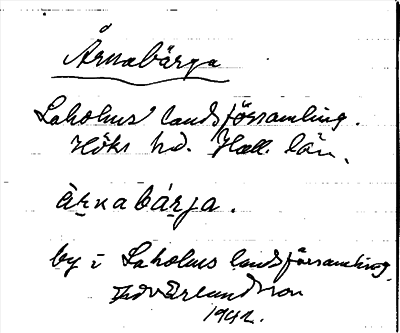 Årnabärga
Laholms landsförsamling.
Höks hd. Hall. län.
àrnabárja.
by i Laholms landsförsamling
Erlundsson
1942.